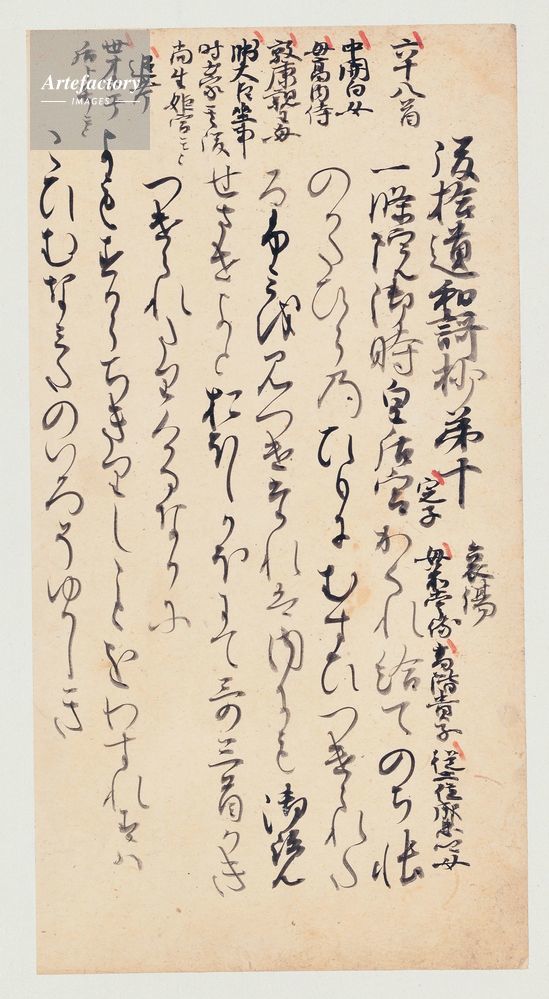 Artefactory
IMAGES
六十八首
中関白女
敦康親王母
後拾遺和謌抄第十
哀傷
一條院御時皇后宮かくれ給てのち帳
定子
高階貴子
のかたひらのひもにむすひつけられた
るふみを見つけたれは内にも御覧
せさせよとおほしかほにて哥三首かき
つけられたりけるなかに
よもすからちきりしことをわすれすは
こひむなみたのいろそゆかしき